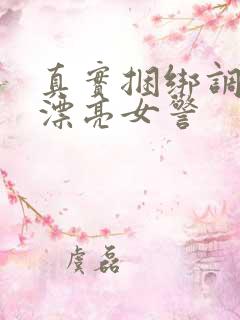 真實捆綁調
漂亮女警
虞磊